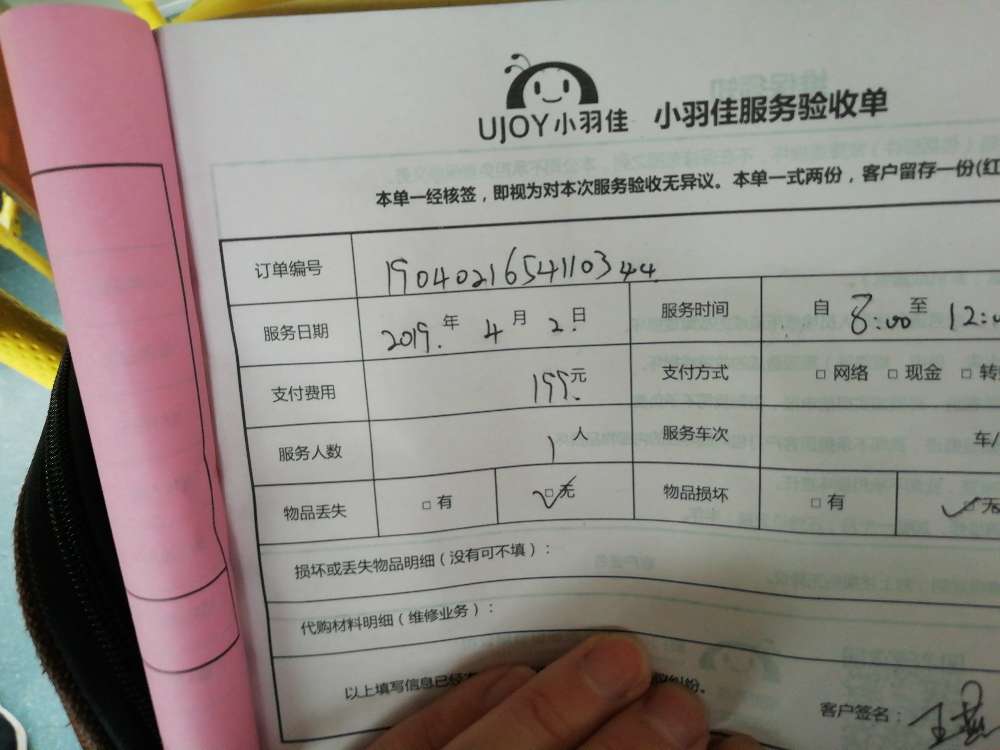 UJOY小羽佳 小羽佳服务验收单
本单一经核签，即视为对本次服务验收无异议。本单一式两份，客户留存一份(红
订单编号 190402165411034 4
服务日期 2019.年 4月 2.日 服务时间 自 8:00至 12:0
支付费用 199元 支付方式 □ 网络 □ 现金 □ 转
服务人数 1人 服务车次 车/
物品丢失 □ 有 □ 无 物品损坏 □ 有 □ 无
损坏或丢失物品明细（没有可不填）：
代购材料明细（维修业务）：
以上填写信息已经 纠纷。
客户签名：王